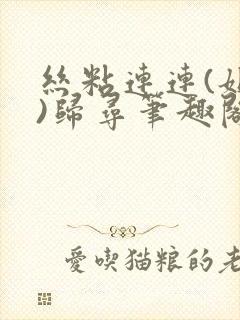 絲粘連連(
)歸尋筆趣閣
愛喫猫粮的老